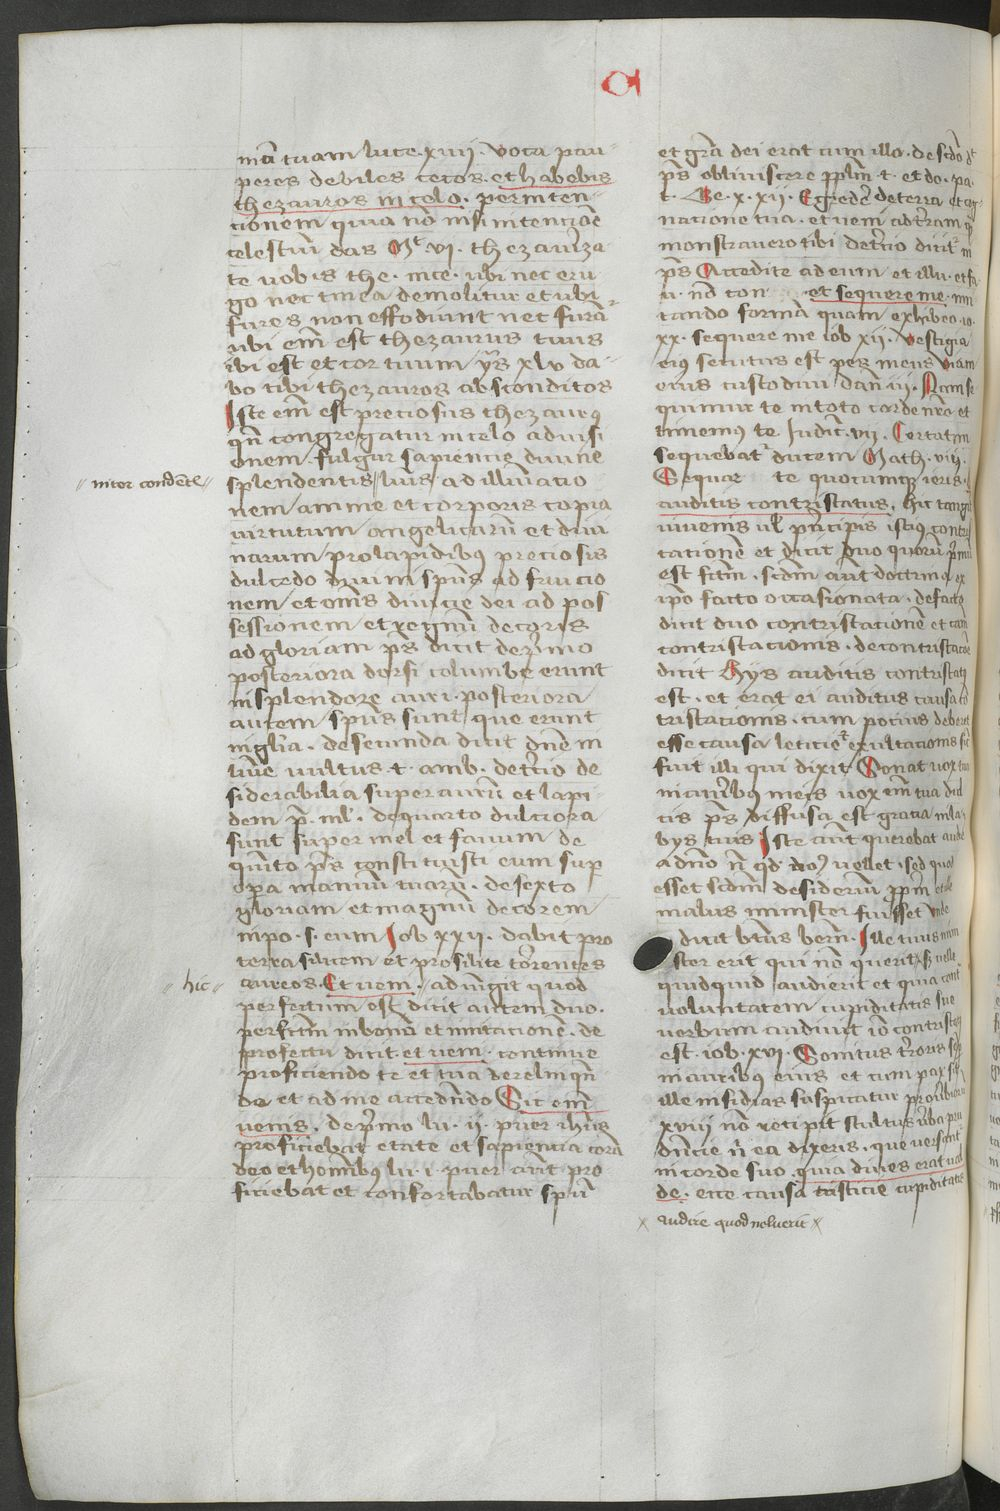 mā tuam luce . xviii . voca pau-
peres debiles cecos . et habebis
thezauros in celo . per inten-
cionem quia nō nisi intencionē
celestiū das Mᵗ vi . thezauriza-
te vobis the . in ce . ubi nec eru
go nec tinea demolitur et ubi
fures non effodiunt nec furā
ubi em̄ est thezaurus tuus
ibi est et cor tuum ys xlv da-
bo tibi thezauros absconditos
Iste em̄ est preciosus thezaurꝯ
qn̄ congregatur in celo ad visi
onem fulgur sapiencie divine
splendentis luis . ad illuīacio
nem anime et corporis copia
virtutum angelicarū et divi
narum pro lapidibꝯ preciosis
dulcedo divini sp̄us ad fruicio
nem et om̄s divicie dei ad pos
sessionem et regnū decoris
ad gloriam p̄s dicit de p̄mo
posteriora dorsi columbe erunt
in splendore auri . posteriora
autem sp̄us sunt que erunt
in gl̄ia . de secunda dicit dn̄e in
lūie vultus . t . amb . de t̄rcio de
siderabilia super aurū et lapi-
dem p̄ . ml̄ . de quarto dulciora
sunt super mel et favum de
quīto p̄s constituisti eum sup̄
opa manuū tuarū . de sexto
gloriam et magnū decorem
inpo . s . eum Iob xxii . dabit pro
terra silicem et pro silice torrentes
aureos . Et veni . adiungit quod
perfectum est dicit autem duo .
perfectū in bonū et imitacionē . de
profectu dicit et veni . continue
proficiendo te et tua derelinqn̄
do et ad me accedn̄do Sic em̄
venis . de p̄mo lu . ii . puer ihūs
proficiebat etate et sapiencia corā
deo et hominibꝯ lu . i . puer aut pro
ficiebat et confortabatur spū
// inter condente //
// hic //
et grā dei erat cum illo . de scdo dt
p̄s obliviscere pplm̄ . t . et do . pa .
t . Ge . x . xii . Egreder̄ de terra et cog
natione tua . et veni ad t̄ram q̄
monstravero tibi de t̄rcio dicit in
p̄s Accedite ad eum et illu . et fa .
v . nō con et sequere me . imi
tando formā quam exhibeo . io .
xx . sequere me iob xii . vestigia
eius secutus est pes meus viam
eius custodivi dan̄ iii . Nunc se
quimur te in toto corde nro et
timemꝯ te Iudic̄ . vii . Certatim
sequebat̄ ducem Math . viii .
Sequar te quocumqꝫ ieris .
auditis contristatus . hic tangit
iuvenis ul̄ principis istiꝯ contris
tacionē et dicit duo quorū p̄mū
est fctm̄ . scdm̄ aut̄ doctrina ex
ipo facto occasionata . de facto
dicit duo contristacionē et cam
contristacionis . de contristacōe
dicit Hys auditis contristatꝯ
est . et erat ei auditus causa cō
tristacionis . cum pocius deberet
esse causa leticie et exultacionis sic̄
fuit illi qui dixit Sonat vox tua
in auribꝯ meis vox em̄ tua dul
cis p̄s diffusa est gratia in la
bys tuis Iste aut̄ querebat audire
a dnō n̄ qd dnꝯ vellet . sed quod
esset scdm̄ desideriū ppm̄ et ille
malus minister fuisset unde
dicit btūs bern̄ . Ille tuus mini
ster erit qui nō querit x velle
quidquid audierit et quia cont
voluntatem cupiditatis sue
verbum audivit iō contristatꝯ
est . iob . xvi . Sonitus t̄roris sp̄
in auribꝯ eius et cum pax sit
ille insidias suspicatur proverbiorū
xviii nō recipit stultus v̄ba pru
dn̄cie n̄ ea dixeris . que versant̄
in corde suo . quia dives erat val
de . ecce causa tristicie cupiditatis
x audire quod noluerit x